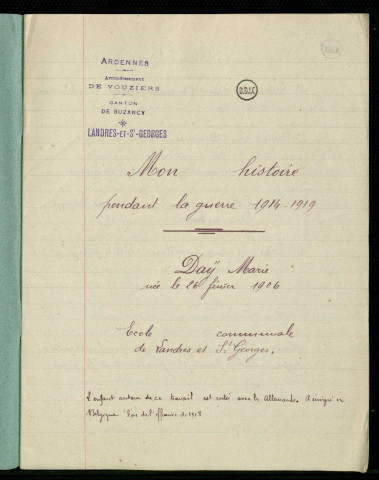 ARDENNES
Arrondissement
DE VOUZIERS
CANTON
DE BUZANCY
LANDRES-ET-St-GEORGES
B.D.I.C
Mon histoire
pendant la guerre 1914-1919
Daÿ Marie
née le 26 février 1906
Ecole communale
de Landres et St Georges.
L'enfant auteur de ce travail est resté avec les Allemands. A émigré en
Belgique lors de l'offensive de 1918